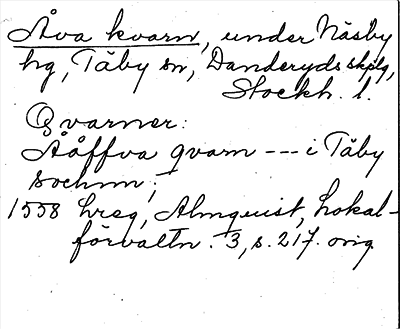 Åva kvarn, under Näsby
hg, Täby sn, Danderyds skplg,
Stockh. l.
Qvarner:
Aåffva qvarn --- i Täby
sochnn;
1558 hreg, Almquist, Lokal-
förvaltn. 3, s. 217. orig.